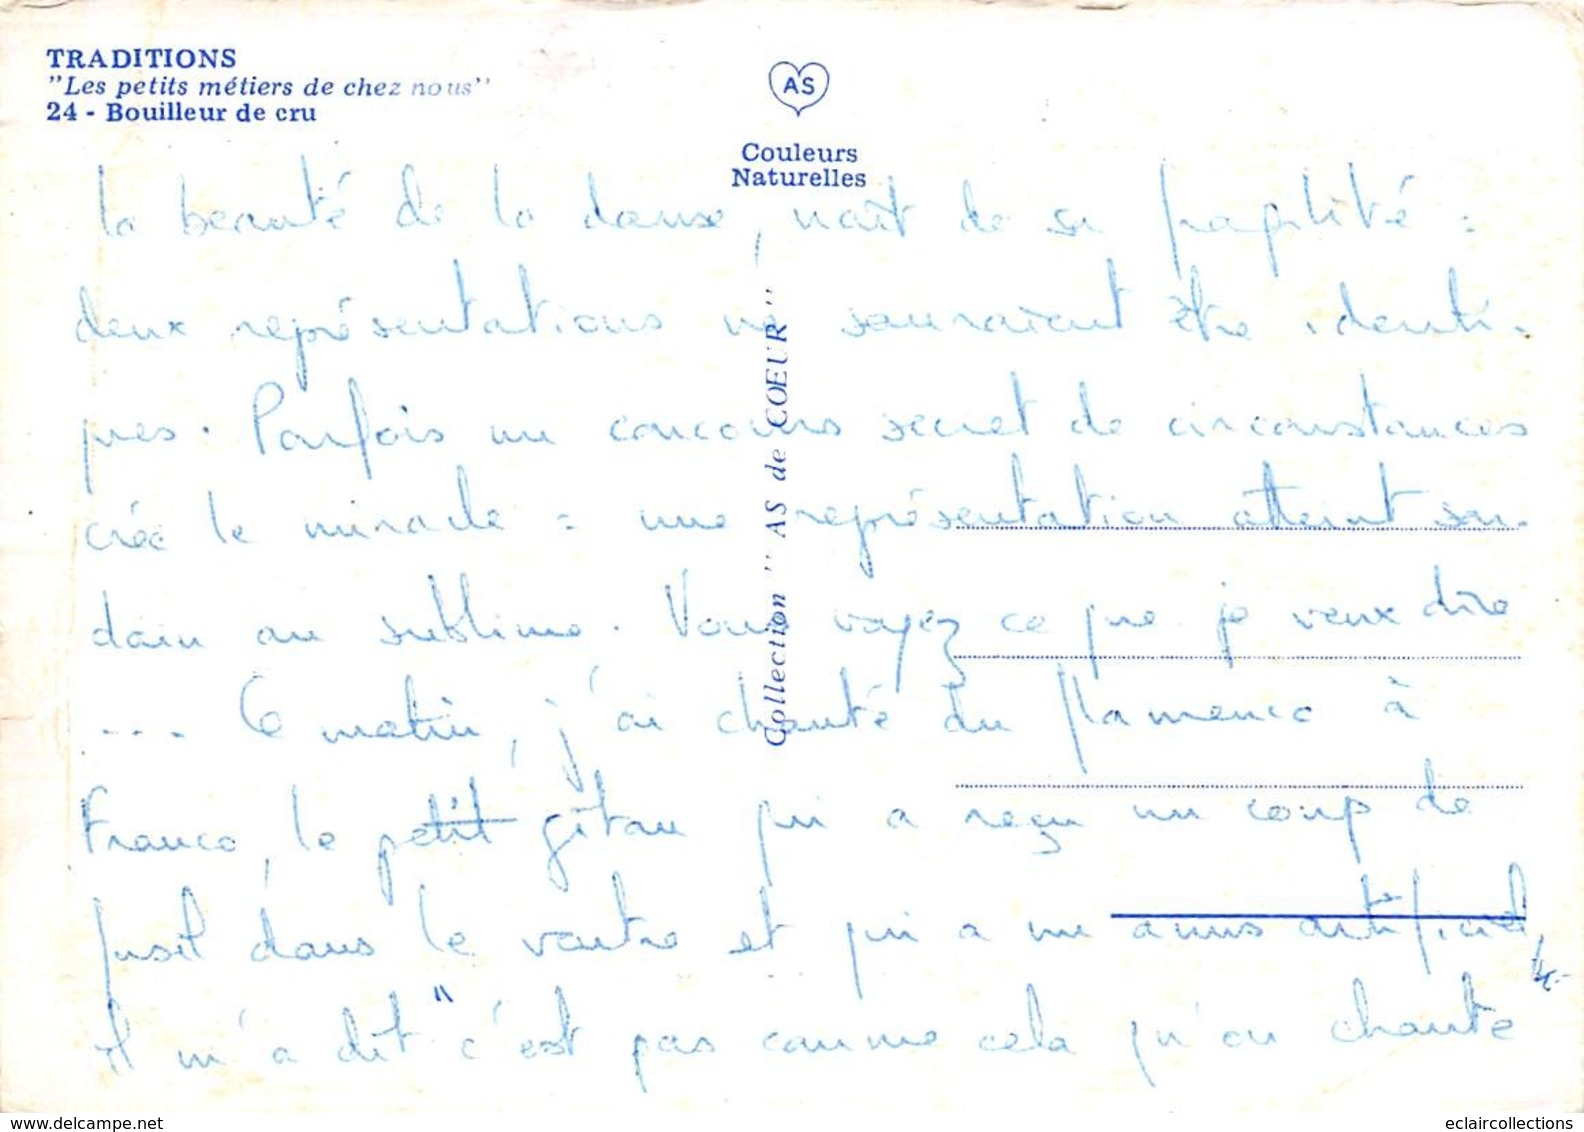 TRADITIONS
"Les petits métiers de chez nous"
24 - Bouilleur de cru
AS
Couleurs
Naturelles
Collection " AS de CŒUR"
la beauté de la danse, naît de sa fragilité :
deux représentations ne sauraient être identi-
ques. Parfois un concours secret de circonstances
crée le miracle : une représentation atteint sou-
dain au sublime. Vous voyez ce que je veux dire
... Ce matin, j'ai chanté du flamenco à
Franco, le petit gitan qui a reçu un coup de
fusil dans le ventre et qui a un anus artificiel,
il m'a dit "c'est pas comme cela qu'on chante
delcampe.net
eclaircollections